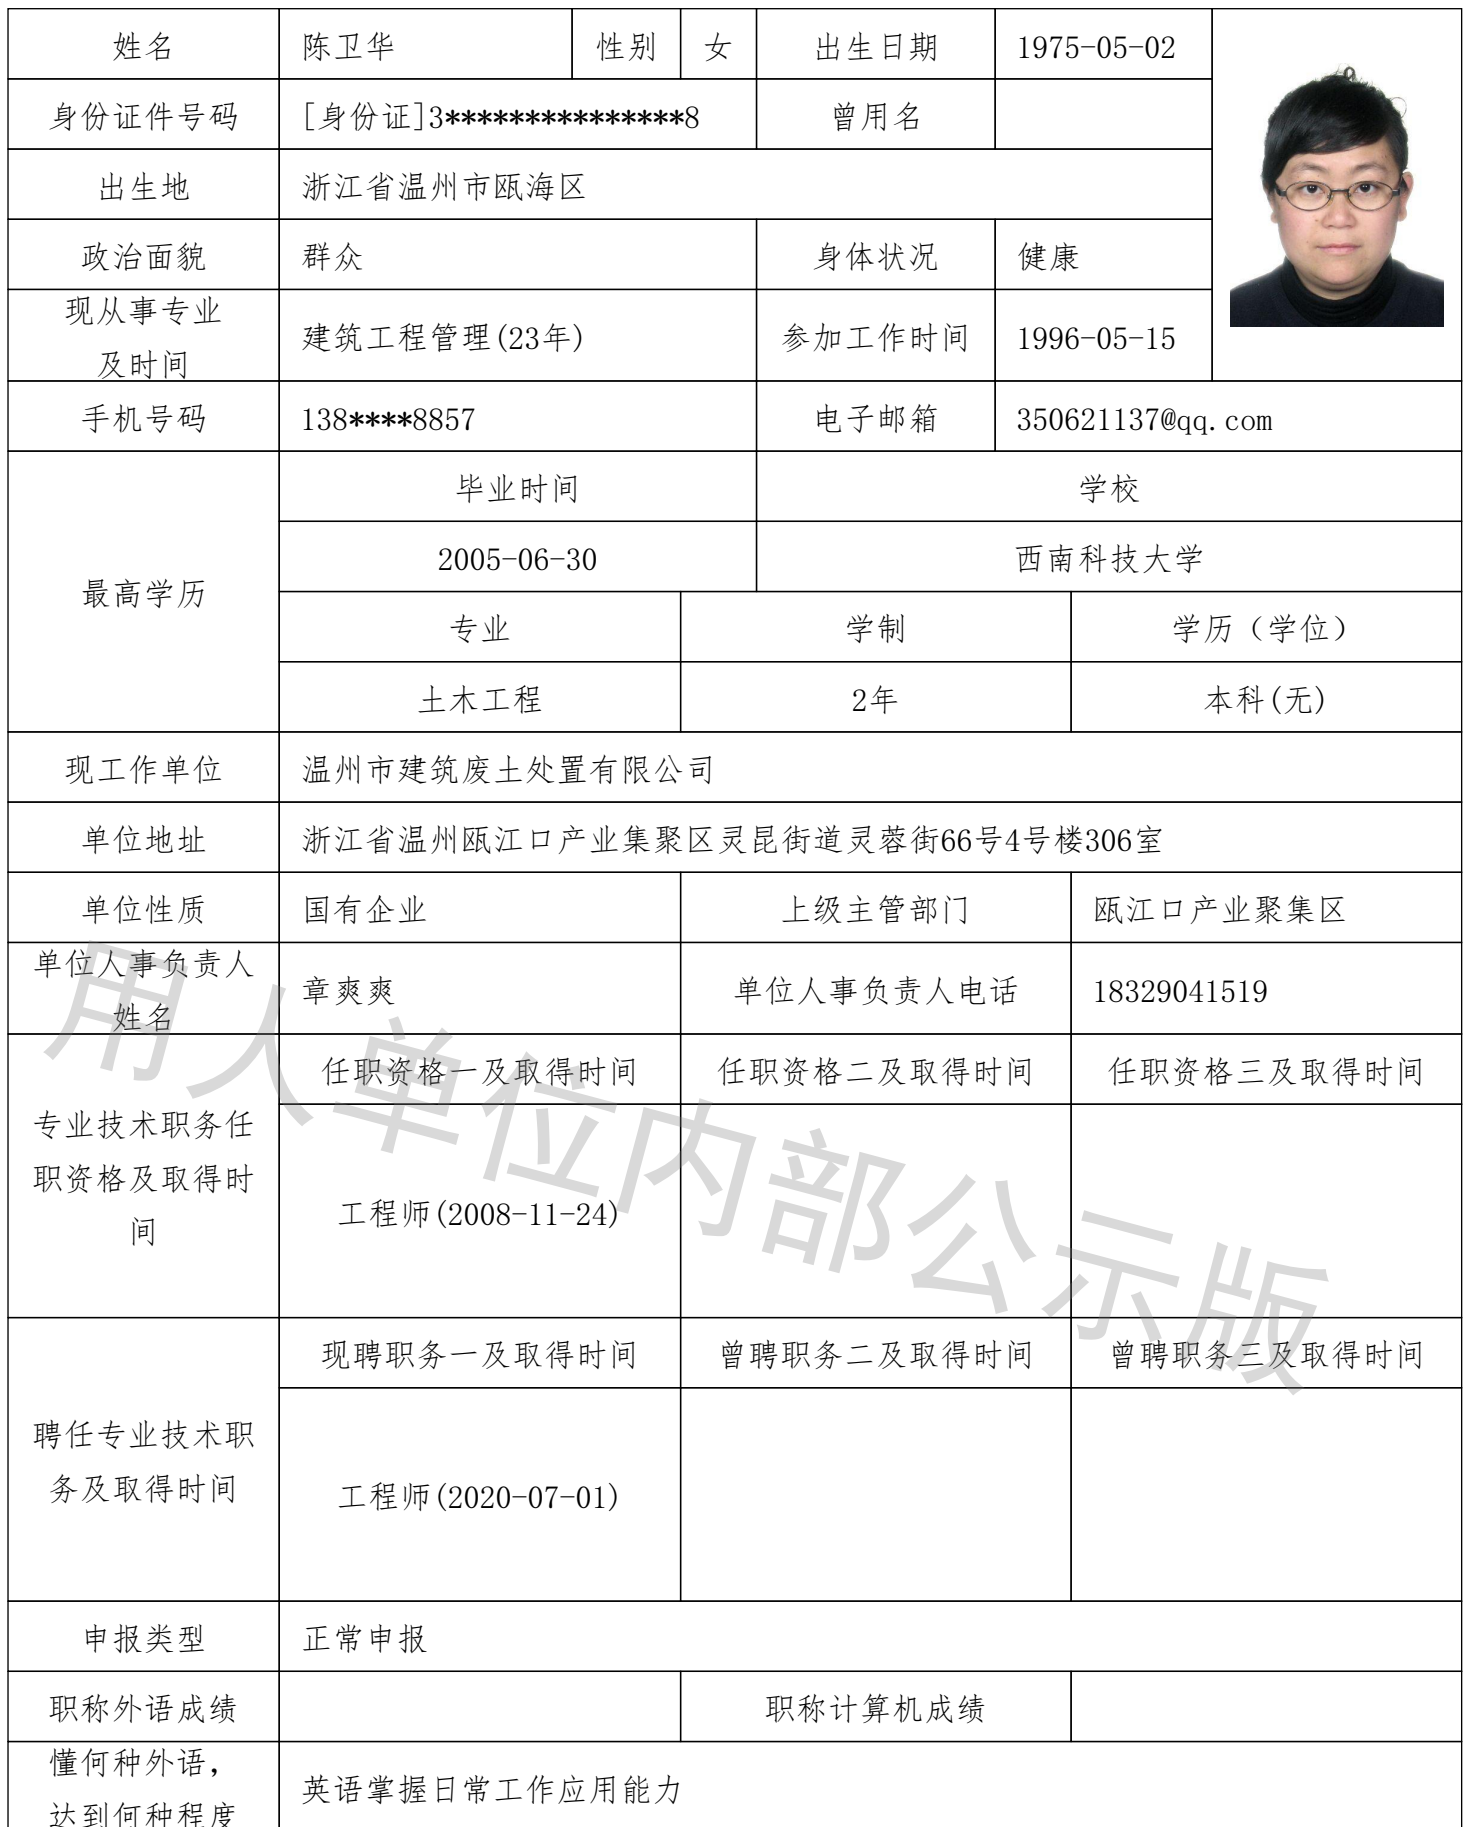 姓名 陈卫华 性别 女 出生日期 1975-05-02
身份证件号码 [身份证]3***************8 曾用名
出生地 浙江省温州市瓯海区
政治面貌 群众 身体状况 健康
现从事专业
及时间 建筑工程管理(23年) 参加工作时间 1996-05-15
手机号码 138****8857 电子邮箱 350621137@qq.com
最高学历
毕业时间 学校
2005-06-30 西南科技大学
专业 学制 学历（学位）
土木工程 2年 本科(无)
现工作单位 温州市建筑废土处置有限公司
单位地址 浙江省温州瓯江口产业集聚区灵昆街道灵蓉街66号4号楼306室
单位性质 国有企业 上级主管部门 瓯江口产业聚集区
单位人事负责人
姓名 章爽爽 单位人事负责人电话 18329041519
专业技术职务任
职资格及取得时
间
任职资格一及取得时间 任职资格二及取得时间 任职资格三及取得时间
工程师(2008-11-24)
聘任专业技术职
务及取得时间
现聘职务一及取得时间 曾聘职务二及取得时间 曾聘职务三及取得时间
工程师(2020-07-01)
申报类型 正常申报
职称外语成绩 职称计算机成绩
懂何种外语，
达到何种程度 英语掌握日常工作应用能力
用人单位内部公示版